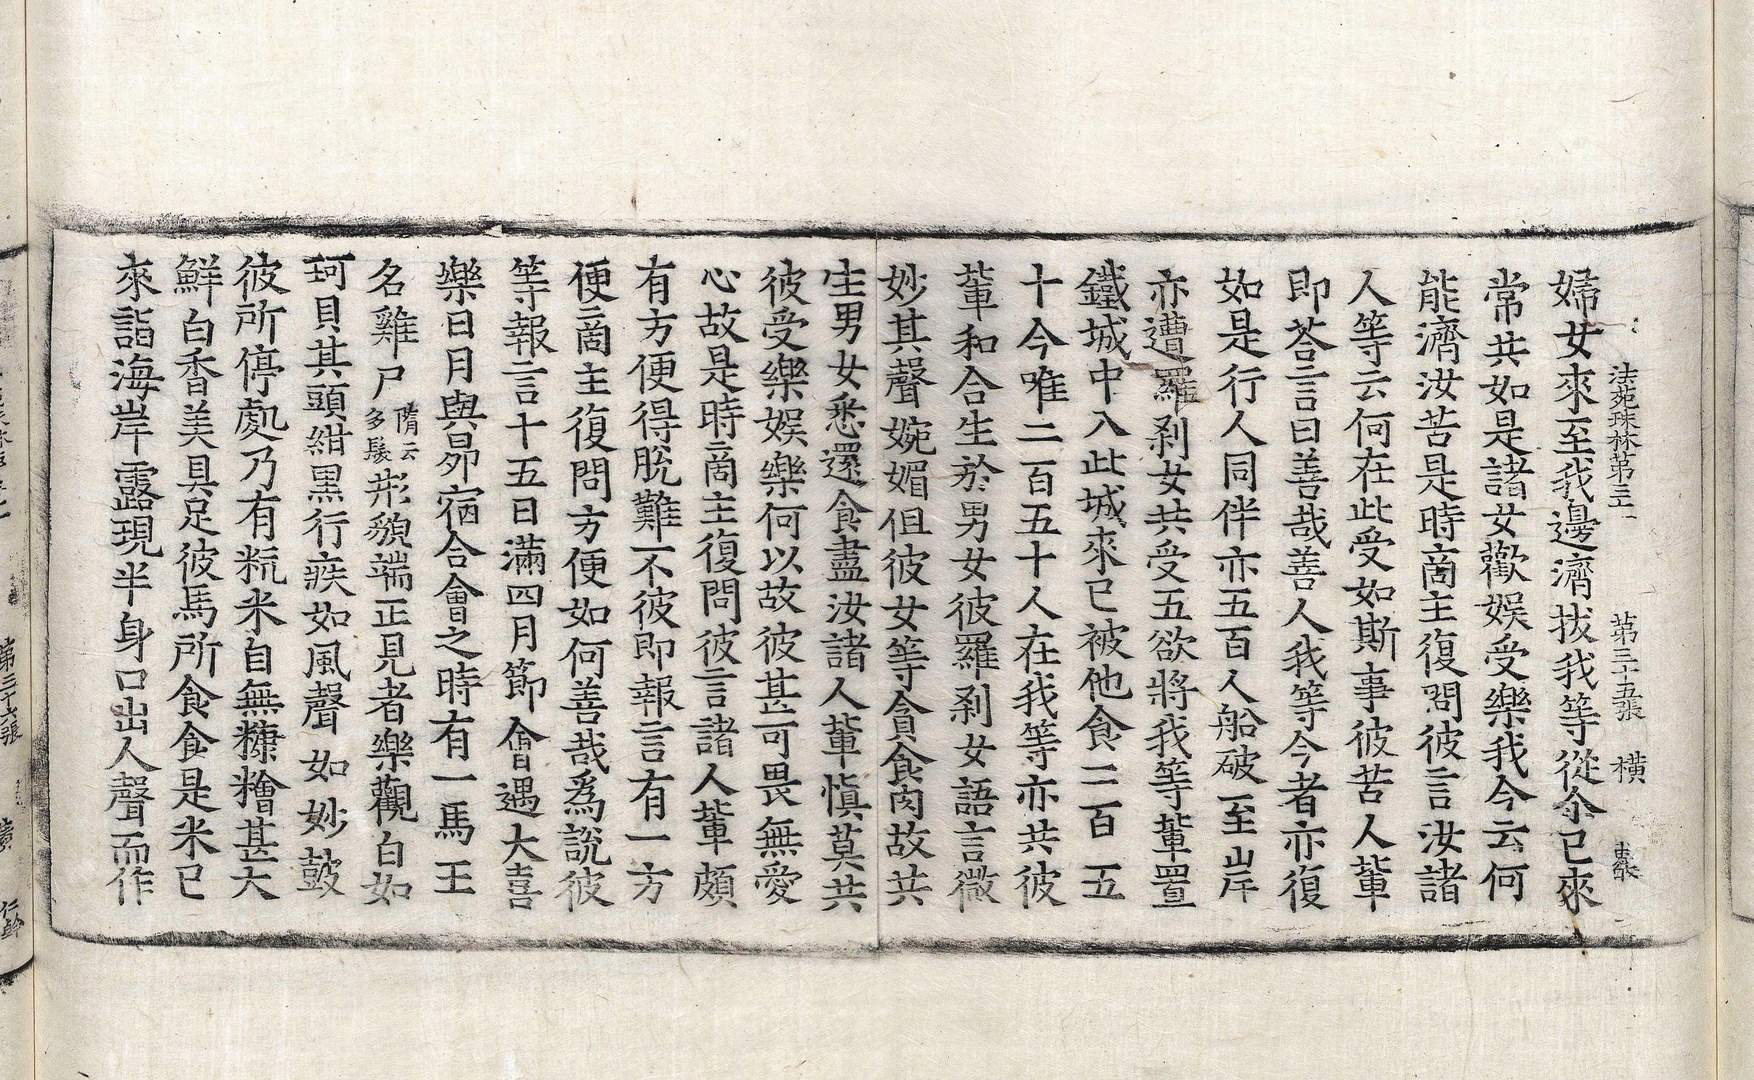 法苑珠林第三十一 第三十五張 橫
婦女來至我邊濟拔我等從今已來
常共如是諸女歡娛受樂我今云何
能濟汝苦是時商主復問彼言汝諸
人等云何在此受如斯事彼苦人輩
即荅言曰善哉善人我等今者亦復
如是行人同伴亦五百人船破至岸
亦遭羅刹女共受五欲將我等輩置
鐵城中入此城來已被他食二百五
十今唯二百五十人在我等亦共彼
輩和合生於男女彼羅刹女語言微
妙其聲婉媚但彼女等貪食肉故共
生男女悉還食盡汝諸人輩慎莫共
彼受樂娛樂何以故彼甚可畏無愛
心故是時商主復問彼言諸人輩頗
有方便得脫難不彼即報言有一方
便商主復問方便如何善哉爲說彼
等報言十五日滿四月節會遇大喜
樂日月與昴宿合會之時有一馬王
名雞尸隋云多髮形貌端正見者樂觀白如
珂貝其頭紺黑行疾如風聲如妙鼓
彼所停處乃有粇米自無糠糩甚大
鮮白香美具足彼馬所食食是米已
來詣海岸露現半身口出人聲而作
第三十六張